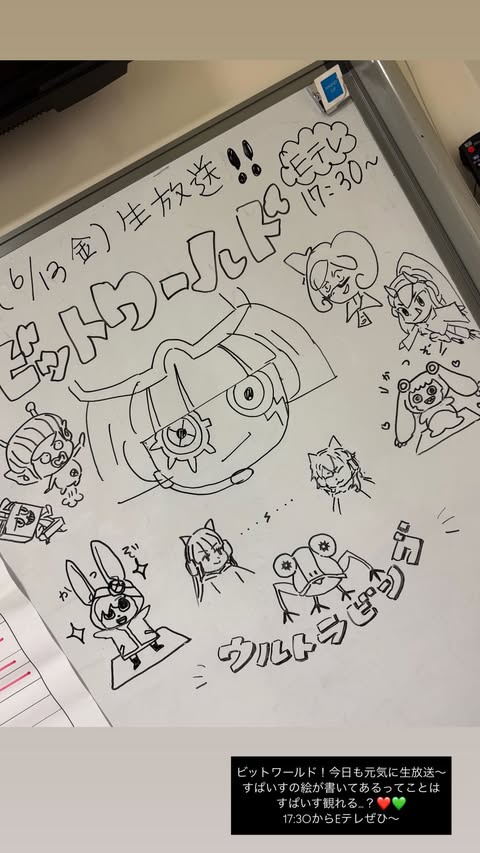 (6/13 金) 生放送!!
Eテレ
17:30〜
ビットワールド
がっ
ぞ
ウルトラビンゴ
ビットワールド！今日も元気に生放送〜
すぱいすの絵が書いてあるってことは
すぱいす観れる…？❤️💚
17:30からEテレぜひ〜